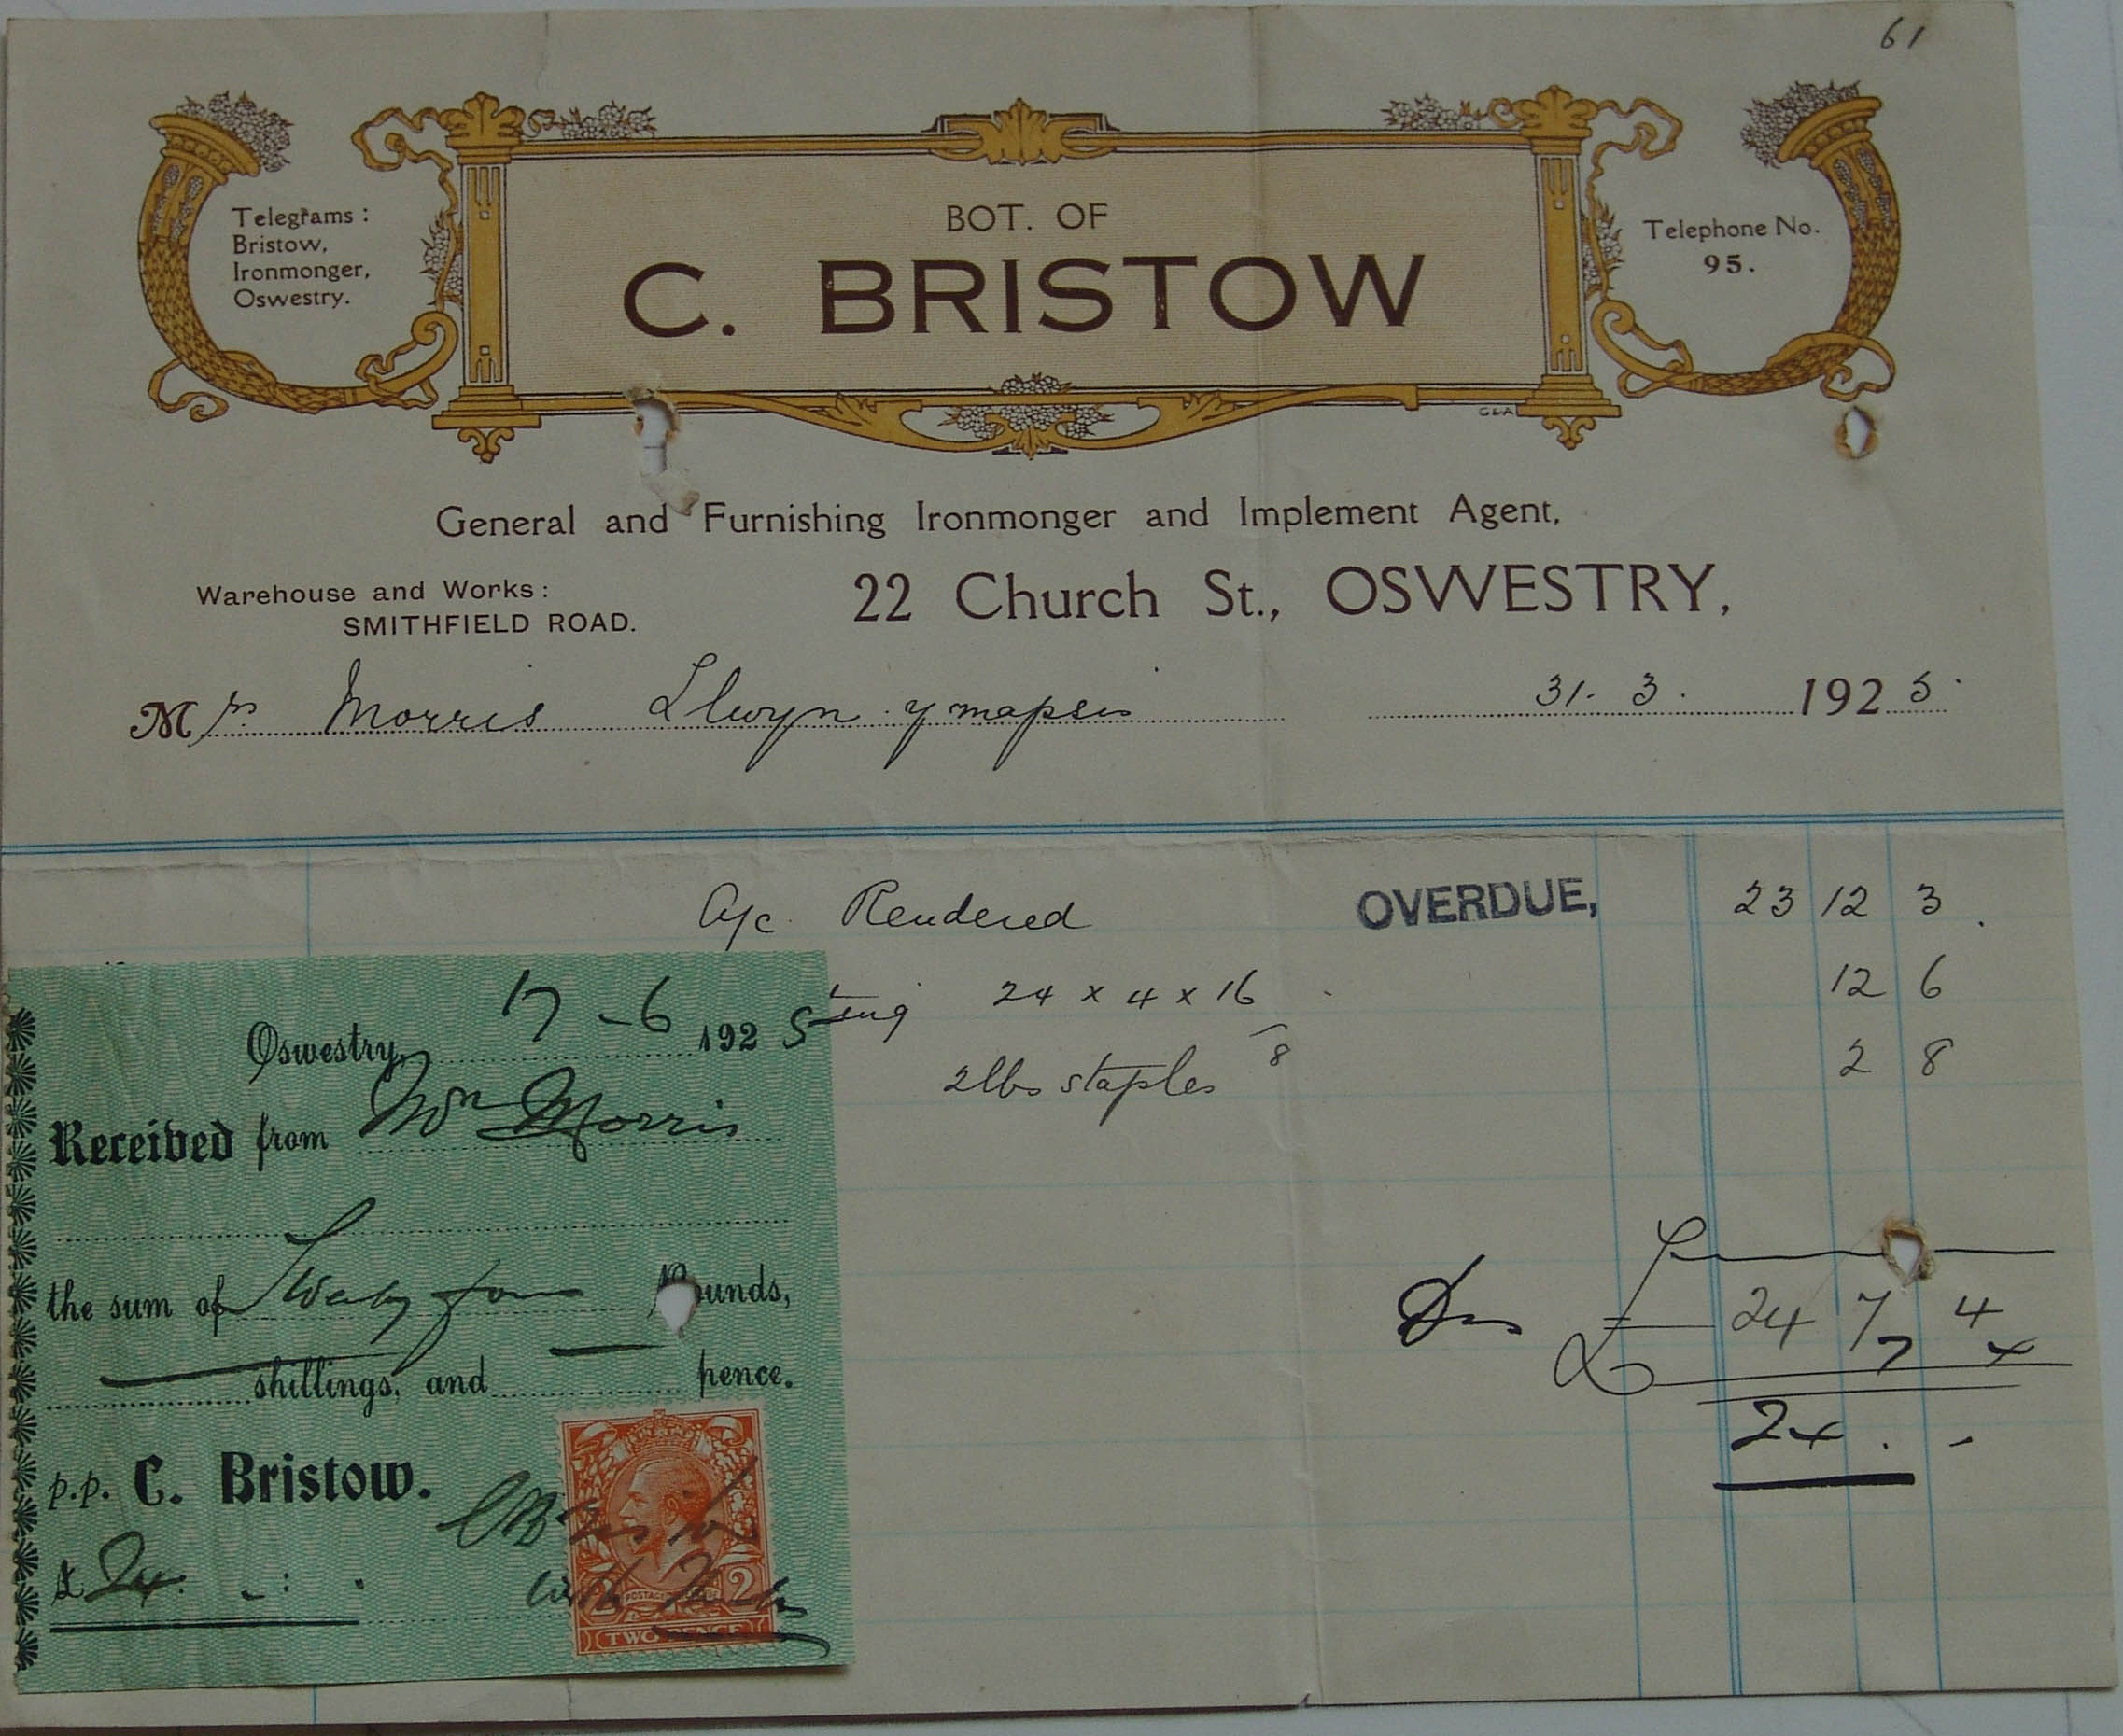 61
BOT. OF
C. BRISTOW
Telegrams:
Bristow,
Ironmonger,
Oswestry.
Telephone No.
95.
General and Furnishing Ironmonger and Implement Agent,
Warehouse and Works:
SMITHFIELD ROAD.
22 Church St., OSWESTRY,
Mrs Morris Llwyn y mapsis 31. 3. 1925.
A/c. Rendered OVERDUE, 23 12 3
24 x 4 x 16 12 6
2lbs staples 8 2 8
£ 24 7 4
7 4
24 . -
Oswestry, 17-6 1925
Received from Morris
the sum of Twenty four Pounds,
shillings, and pence.
p.p. C. Bristow.
C Bristow
£ 24. -:
with Thanks
POSTAGE REVENUE
2 2
TWO PENCE